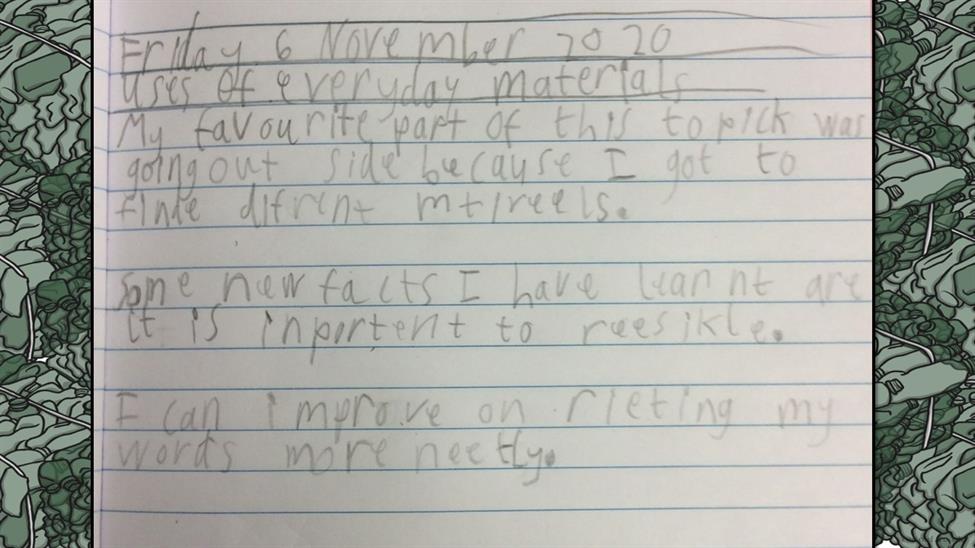 Friday 6 November 2020
Uses of everyday materials
My favourite part of this topick was
going out side because I got to
finde difrent mtireels.
Some new facts I have learnnt are
it is inportent to reesikle.
I can improve on rieting my
words more neetly.